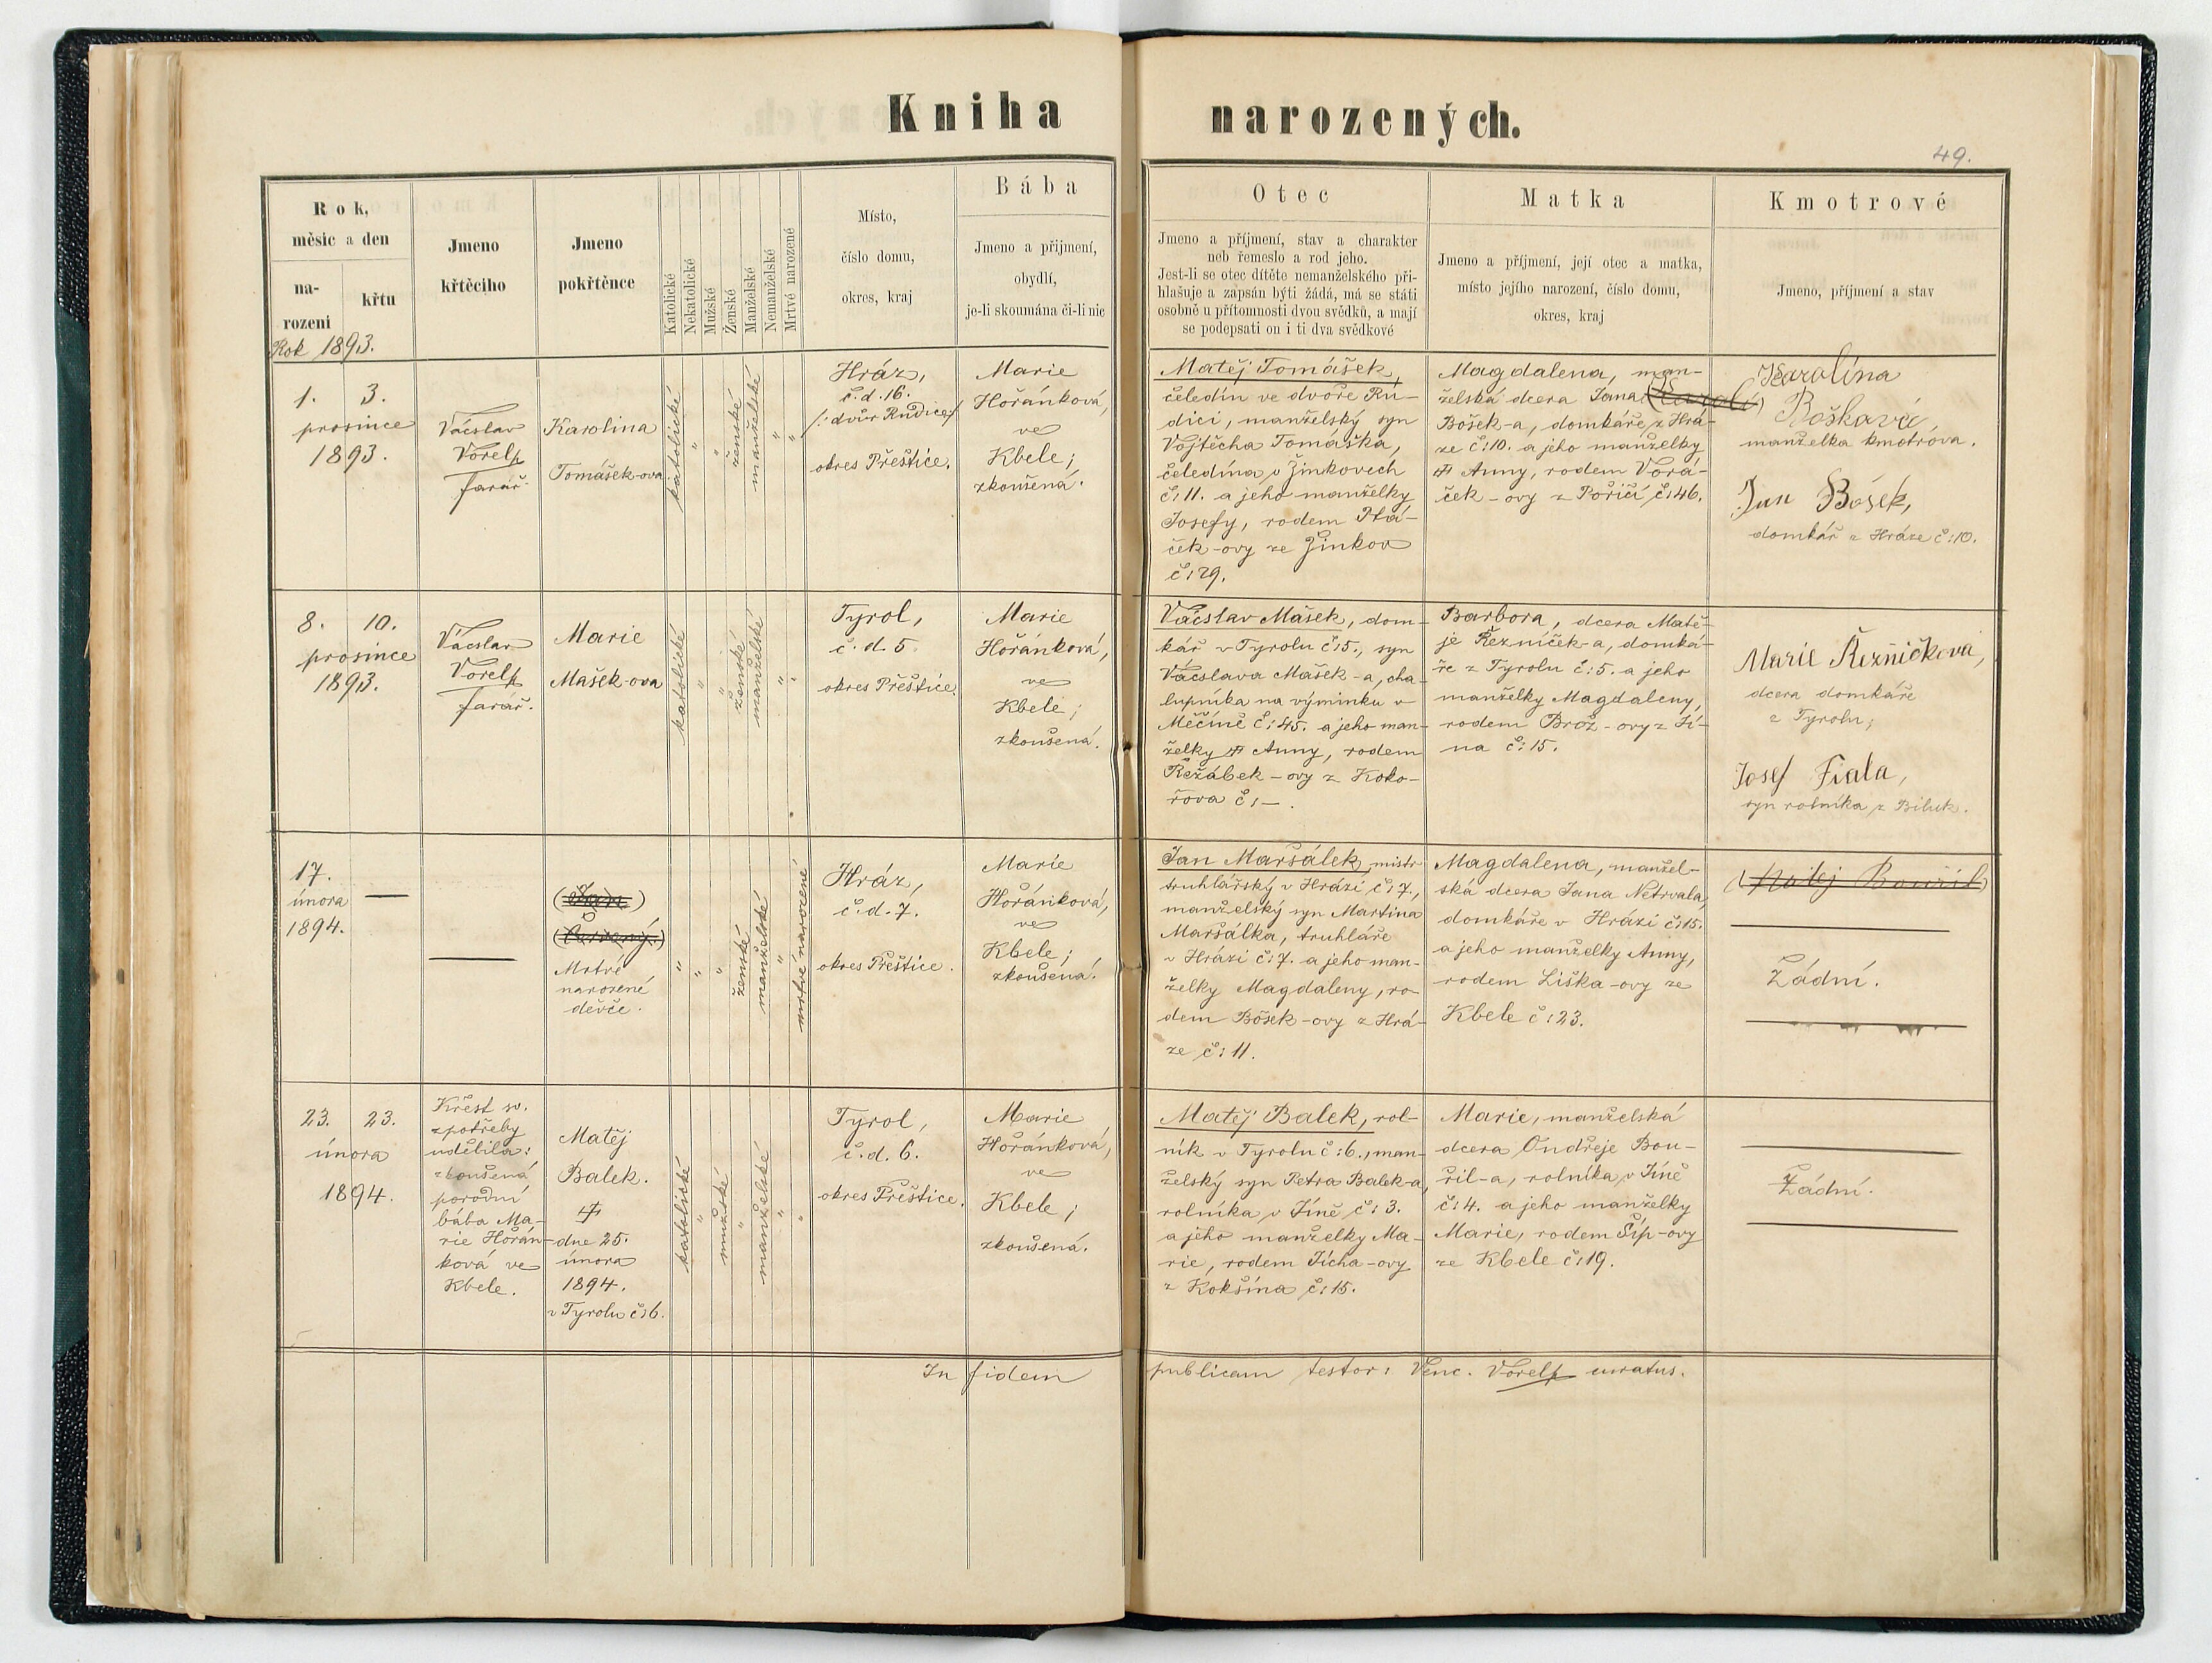 Kniha narozených.
49.
Rok,
měsíc a den
na-
rození
křtu
Jmeno
křtěcího
Jmeno
pokřtěnce
Katolické
Nekatolické
Mužské
Ženské
Manželské
Nemanželské
Mrtvé narozené
Místo,
číslo domu,
okres, kraj
Bába
Jmeno a přijmení,
obydlí,
je-li skoumána či-li nic
Otec
Jmeno a příjmení, stav a charakter
neb řemeslo a rod jeho.
Jest-li se otec dítěte nemanželského při-
hlašuje a zapsán býti žádá, má se státi
osobně u přítomnosti dvou svědků, a mají
se podepsati on i ti dva svědkové
Matka
Jmeno a příjmení, její otec a matka,
místo jejího narození, číslo domu,
okres, kraj
Kmotrové
Jmeno, příjmení a stav
Rok 1893.
1. 3.
prosince
1893.
Václav
Vorel
farář.
Karolina
Tomášek-ova
katolické
"
"
ženské
manželské
"
"
Hráz,
č. d. 16.
/: dvůr Rudice :/
okres Přeštice.
Marie
Hořánková,
ve
Kbele;
zkoušená.
Matěj Tomášek,
čeledín ve dvoře Ru-
dici, manželský syn
Vojtěcha Tomáška,
čeledína v Žinkovech
č: 11. a jeho manželky
Josefy, rodem Ptá-
ček-ovy ze Žinkov
č: 29.
Magdalena, man-
želská dcera Jana
Bošek-a, domkáře z Hrá-
ze č: 10. a jeho manželky
Anny, rodem Vorá-
ček-ovy z Poříčí č: 46.
Karolína
Boškavá
manželka kmotrova.
Jan Bošek,
domkář z Hráze č: 10.
8. 10.
prosince
1893.
Václav
Vorel
farář.
Marie
Mašek-ova
katolické
"
"
ženské
manželské
"
"
Tyrol,
č. d. 5.
okres Přeštice.
Marie
Hořánková,
ve
Kbele;
zkoušená.
Václav Mašek, dom-
kář v Tyrolu č: 5., syn
Václava Mašek-a, cha-
lupníka na výminku v
Měčíně č: 45. a jeho man-
želky Anny, rodem
Řežábek-ovy z Koko-
řova č: —.
Barbora, dcera Matě-
je Řezníček-a, domká-
ře z Tyrolu č: 5. a jeho
manželky Magdaleny,
rodem Brož-ovy z Jí-
na č: 15.
Marie Řezníčkova,
dcera domkáře
z Tyrolu;
Josef Fiala,
syn rolníka z Biluk.
17.
února
1894.
—
—
Mrtvé
narozené
děvče.
"
"
"
ženské
manželské
"
mrtvé narozené
Hráz,
č. d. 7.
okres Přeštice.
Marie
Hořánková,
ve
Kbele;
zkoušená.
Jan Maršálek, mistr
truhlářský v Hrázi č: 7.,
manželský syn Martina
Maršálka, truhláře
v Hrázi č: 7. a jeho man-
želky Magdaleny, ro-
dem Bošek-ovy z Hrá-
ze č: 11.
Magdalena, manžel-
ská dcera Jana Netrvala,
domkáře v Hrázi č: 15.
a jeho manželky Anny,
rodem Liška-ovy ze
Kbele č: 23.
Žádní.
23. 23.
února
1894.
Křest sv.
z potřeby
udělila:
zkoušená
porodní
bába Ma-
rie Hořán-
ková ve
Kbele.
Matěj
Balek.
dne 25.
února
1894.
v Tyrolu č: 6.
katolické
"
mužské
"
manželské
"
"
Tyrol,
č. d. 6.
okres Přeštice.
Marie
Hořánková,
ve
Kbele;
zkoušená.
Matěj Balek, rol-
ník v Tyrolu č: 6., man-
želský syn Petra Balek-a,
rolníka v Jíně č: 3.
a jeho manželky Ma-
rie, rodem Jícha-ovy
z Kokšína č: 15.
Marie, manželská
dcera Ondřeje Bou-
řil-a, rolníka v Jíně
č: 4. a jeho manželky
Marie, rodem Šíp-ovy
ze Kbele č: 19.
Žádní.
In fidem publicam testor: Venc. Vorel curatus.